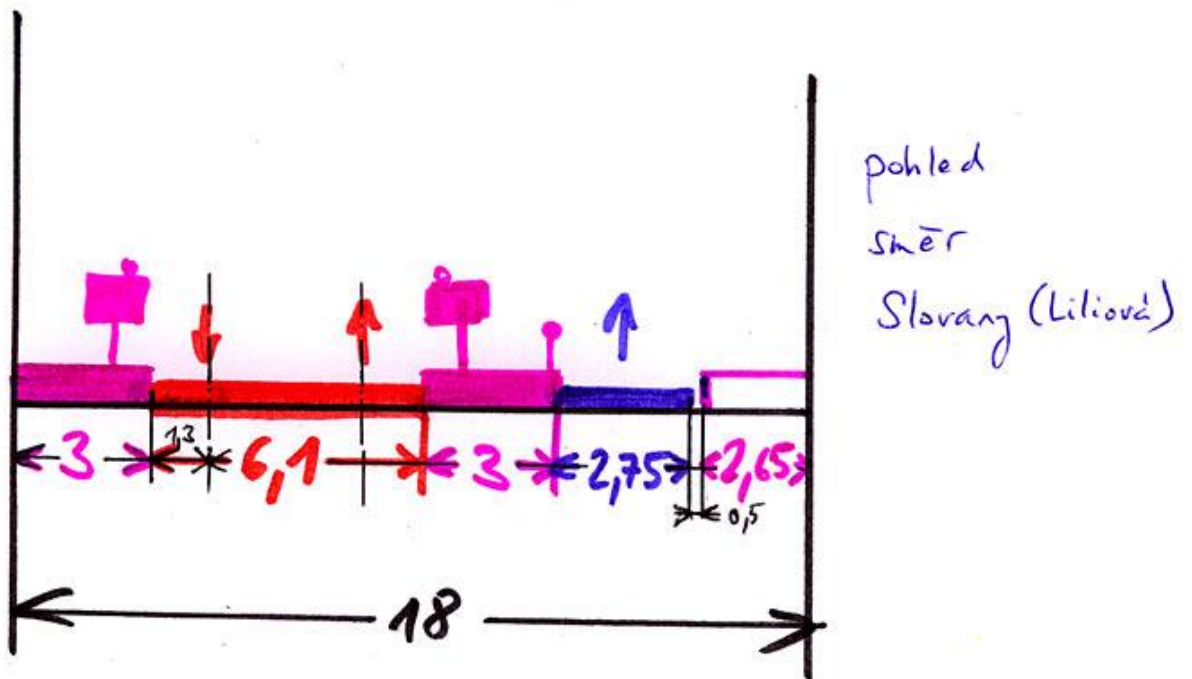 pohled
směr
Slovany (Liliová)
3
1,3
6,1
3
2,75
2,65
0,5
18